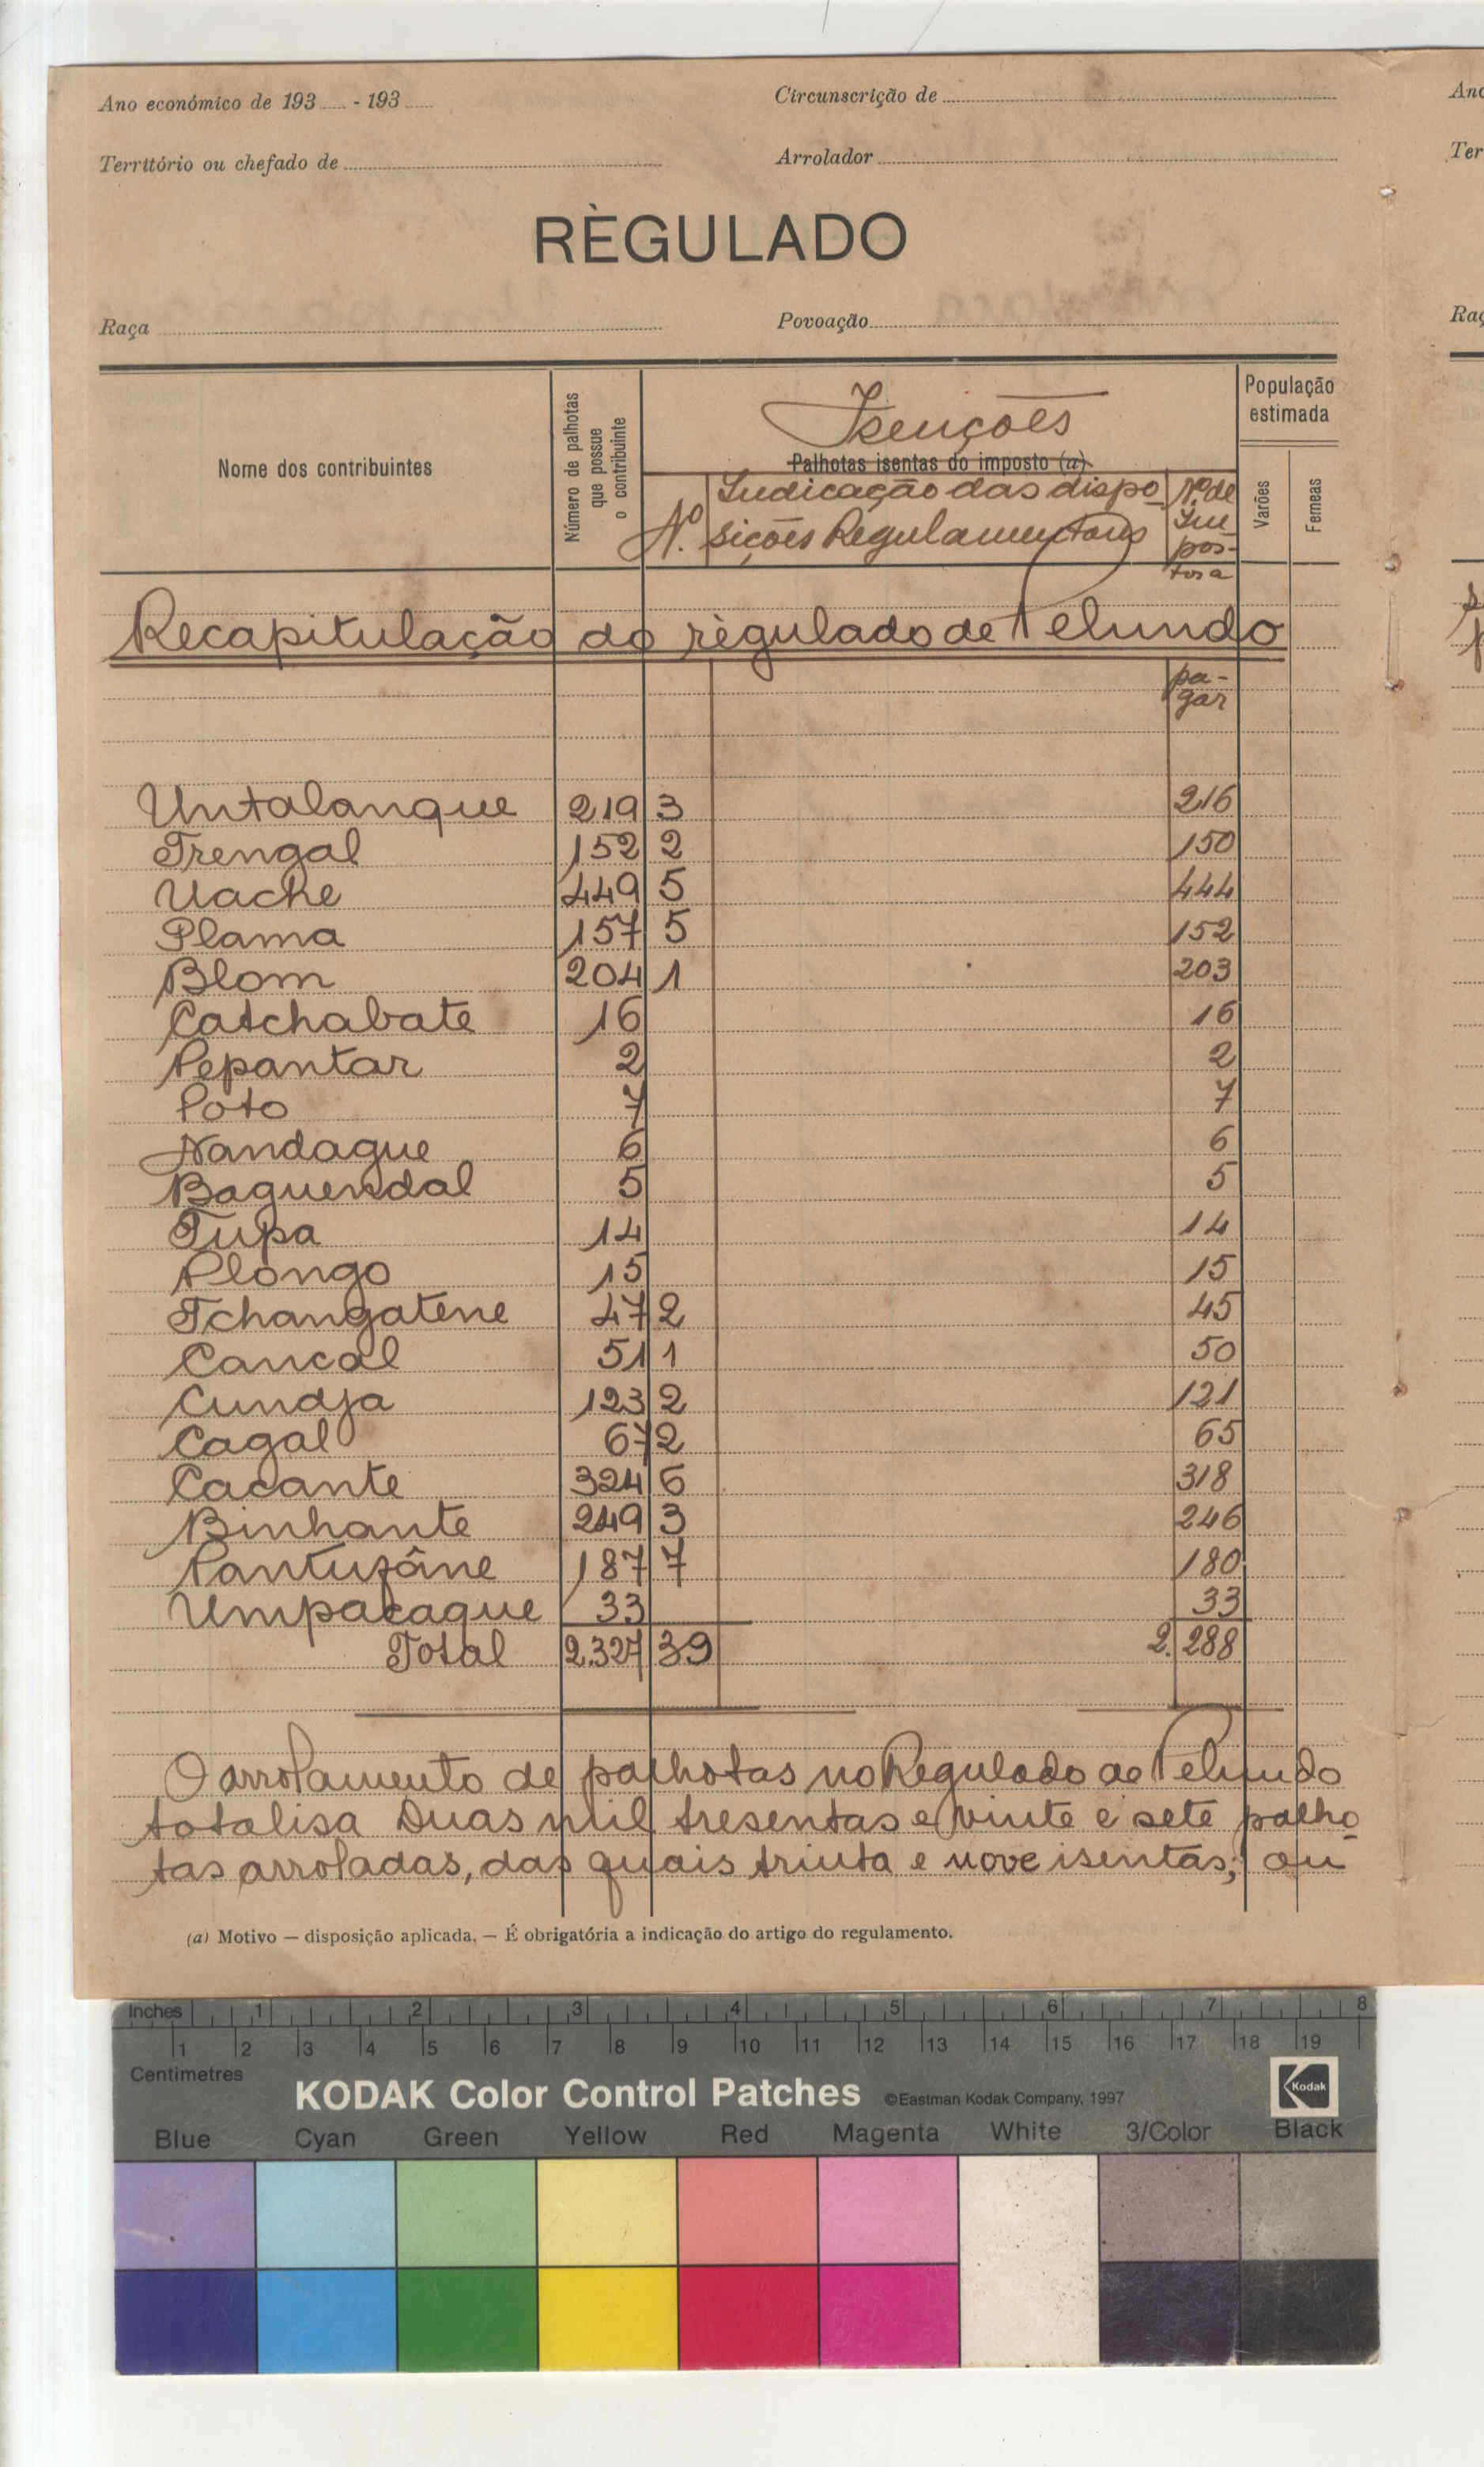 Ano económico de 193 - 193 Circunscrição de
Território ou chefado de Arrolador
RÈGULADO
Raça Povoação
Nome dos contribuintes
Número de palhotas que possue o contribuinte
Isenções
Palhotas isentas do imposto (a)
Nº. Indicação das dispo-
sições Regulamentares
Nº de
Im
pos-
tos a
pa-
gar
População estimada
Varões
Femeas
Recapitulação do règulado de Pelundo
Untalanque 219 3 216
Trengal 152 2 150
Uache 449 5 444
Plama 157 5 152
Blom 204 1 203
Catchabate 16 16
Pepantar 2 2
Poto 7 7
Nandague 6 6
Baguendal 5 5
Tupa 14 14
Plongo 15 15
Tchangatene 47 2 45
Cancal 51 1 50
Cundja 123 2 121
Cagal 67 2 65
Cacante 324 6 318
Binhante 249 3 246
Pantufâne 187 7 180
Umpacaque 33 33
Total 2.327 39 2.288
O arrolamento de palhotas no Regulado de Pelundo
totalisa duas mil tresentas e vinte e sete palho-
tas arroladas, das quais trinta e nove isentas; ou
(a) Motivo — disposição aplicada. — É obrigatória a indicação do artigo do regulamento.
Ano
Ter
Raç
Inches 1 2 3 4 5 6 7 8
1 2 3 4 5 6 7 8 9 10 11 12 13 14 15 16 17 18 19
Centimetres
KODAK Color Control Patches ©Eastman Kodak Company, 1997 Kodak
Blue Cyan Green Yellow Red Magenta White 3/Color Black